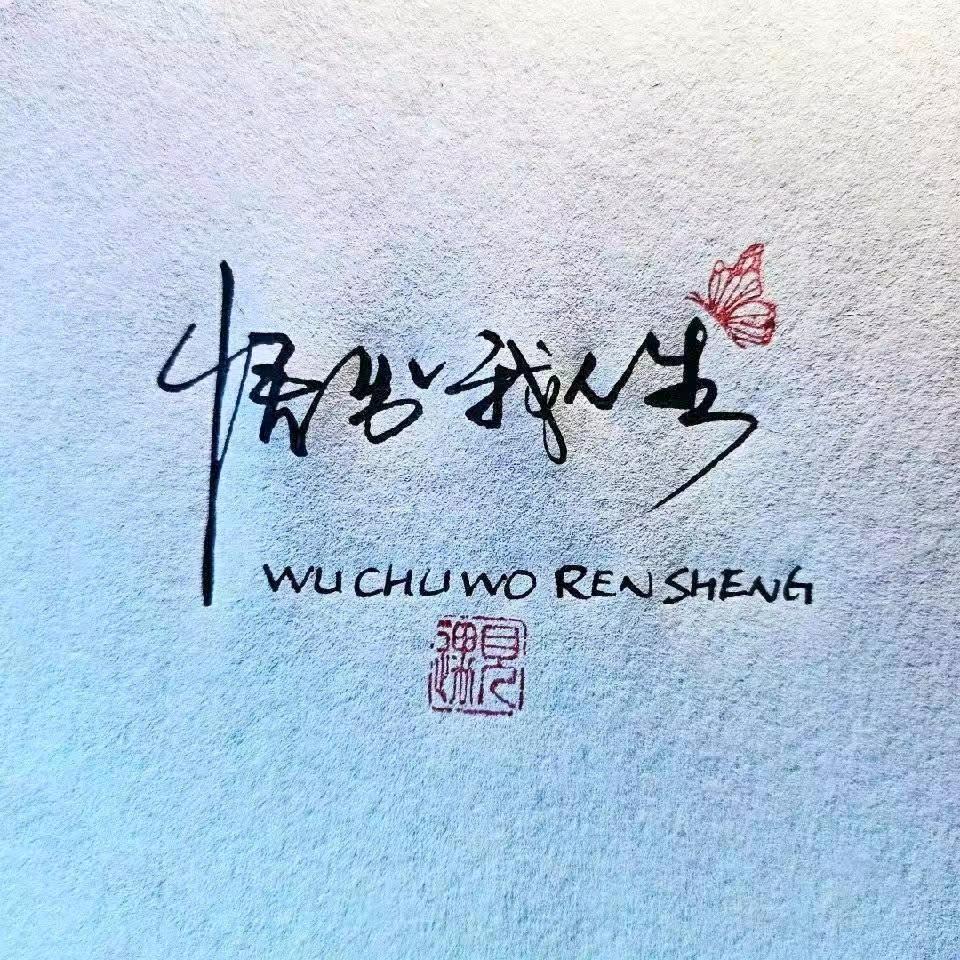 悟出我人生
WU CHU WO REN SHENG